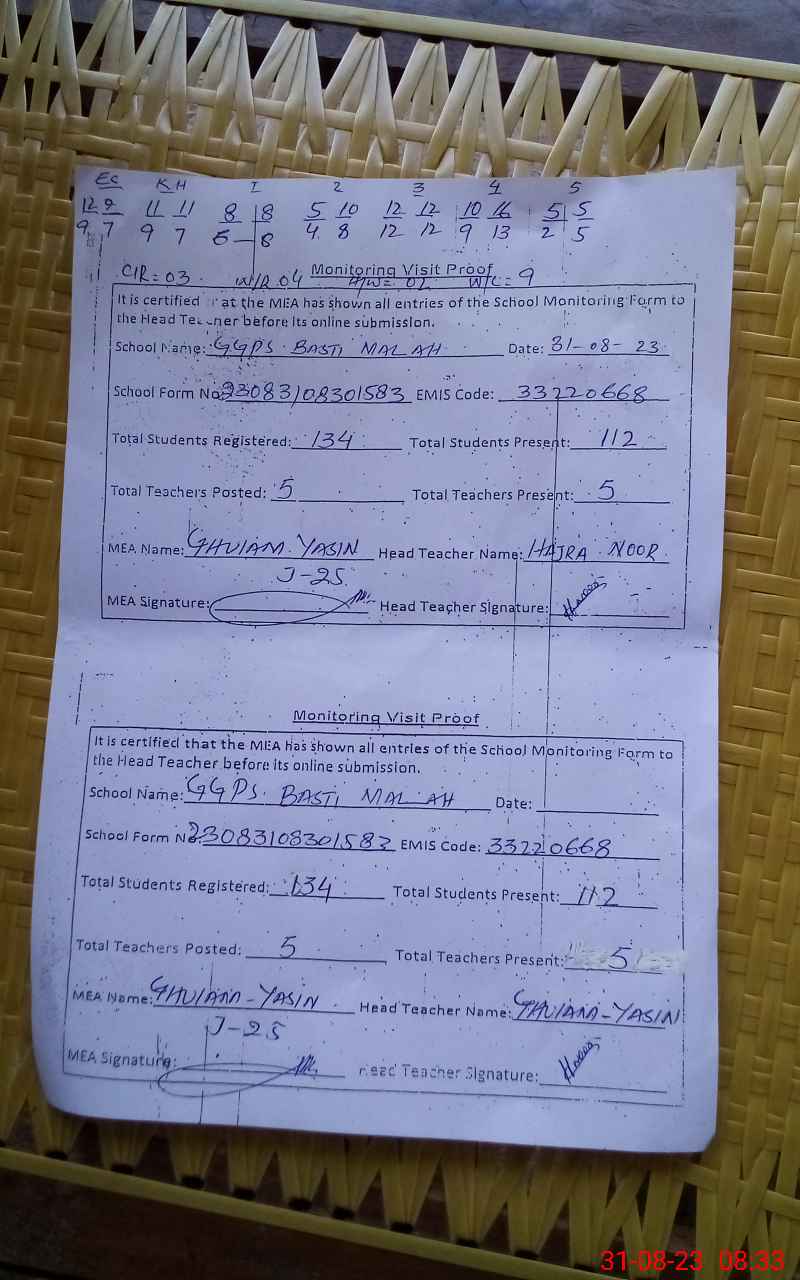 Ec KH I 2 3 4 5
12 9 11 11 8 8 5 10 12 12 10 16 5 5
9 7 9 7 6 8 4 8 12 12 9 13 2 5
CIR=03 W/R 04 Monitoring Visit Proof W/C=9
It is certified at the MEA has shown all entries of the School Monitoring Form to
the Head Teacher before its online submission.
School Name: GGPS BASTI MALAH Date: 31-08-23
School Form No 23083108301583 EMIS Code: 33220668
Total Students Registered: 134 Total Students Present: 112
Total Teachers Posted: 5 Total Teachers Present: 5
MEA Name: GHULAM YASIN Head Teacher Name: HAJRA NOOR
J-25
MEA Signature: Head Teacher Signature:
Monitoring Visit Proof
It is certified that the MEA has shown all entries of the School Monitoring Form to
the Head Teacher before its online submission.
School Name: GGPS BASTI MALAH Date:
School Form N 23083108301583 EMIS Code: 33220668
Total Students Registered: 134 Total Students Present: 112
Total Teachers Posted: 5 Total Teachers Present: 5
MEA Name: GHULAM-YASIN Head Teacher Name: GHULAM-YASIN
J-25
MEA Signature: Head Teacher Signature:
31-08-23 08:33